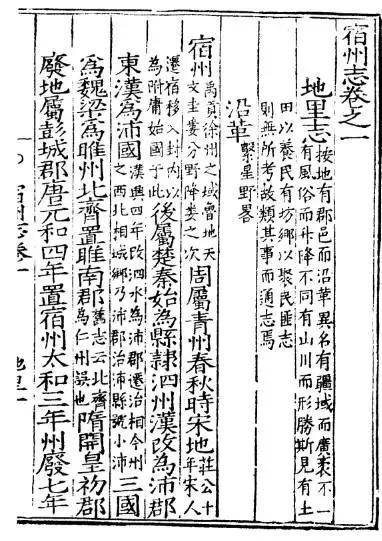 宿州志卷之一
地里志 按地有郡邑而沿革異名有疆域而廣袤不一有風俗而升降不同有山川而形勝斯見有土
田以養民有坊鄉以聚民匪志則無所考故類其事而通志焉
沿革 繫星野畧
宿州 禹貢徐州之域魯地天文奎婁分野降婁之次 周屬青州春秋時宋地 莊公十年宋人
遷宿移入封内以為附庸始國于此 後屬楚秦始為縣隸泗州漢改為沛郡
東漢為沛國 漢興四年改泗水為沛郡遷治相今州之西北相城鄉乃沛郡治沛縣號小沛 三國
為魏梁為睢州北齊置睢南郡 舊志云北齊為仁州誤也 隋開皇初郡
廢地屬彭城郡唐元和四年置宿州太和三年州廢七年
宿州志卷一 地里 一